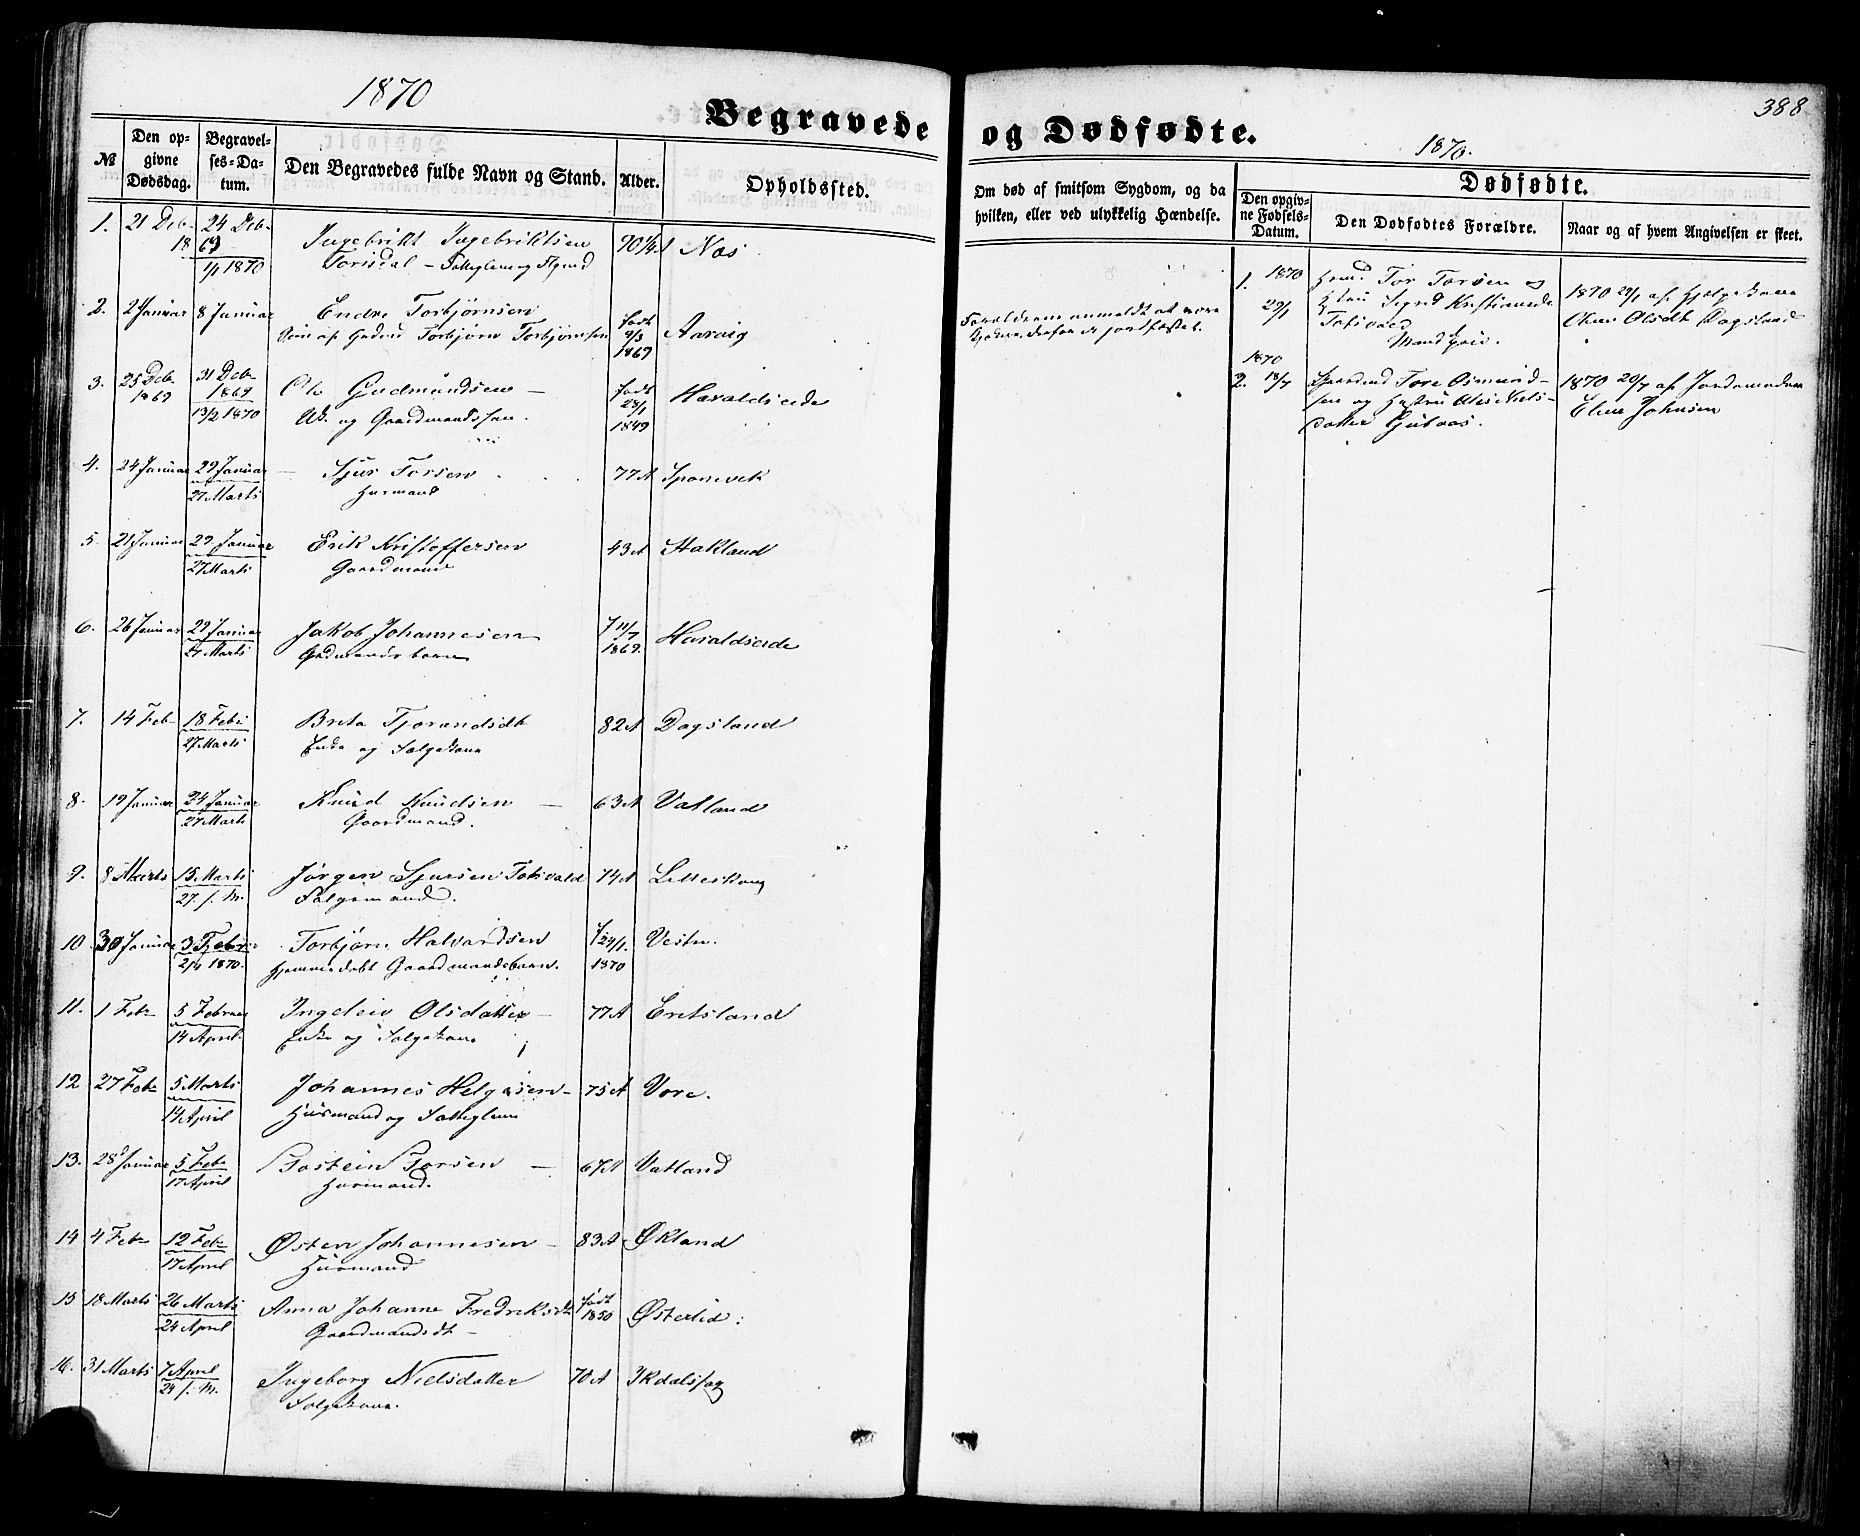 1870
Begravede og Dødfødte.
388
1870.
№
Den opgivne Dødsdag.
Begravelses-Datum.
Den Begravedes fulde Navn og Stand.
Alder.
Opholdssted.
Om død af smitsom Sygdom, og da hvilken, eller ved ulykkelig Hændelse.
Dødfødte.
Den opgivne Fødsels-Datum.
Den Dødfødtes Forældre.
Naar og af hvem Angivelsen er skeet.
1. 21 Deb 24 Deb Ingebrikt Ingebriktsen 90¼ A Næs
18 69 Torisdal
1/1 1870
2. 2 Januar 8 Januar Endre Torbjørnsen født Aarvig
Søn af Gmd Torbjørn Torbjørnsen 9/3
1869
3. 25 Deb 31 Deb Ole Gudmundsen født Haraldseide
1869 1869 Uk. og Gaardmandssøn. 23/1
13/2 1870 1849
4. 24 Januar 29 Januar Sjur Torsen 77 A Sponevik
27 Marts Husmand
5. 21 Januar 29 Januar Erik Kristoffersen 43 A Stakland
27 Marts Gaardmand
6. 26 Januar 29 Januar Jakob Johannesen f 11/7 Haraldseide
27 Marts Grdmandsbarn 1869.
7. 14 Feb 18 Febr Brita Tjorandsdt 82 A Dagsland
27 Marts Enke og Folgekone
8. 19 Januar 24 Januar Knud Knudsen 63 A Vatland
27 Marts Gaardmand.
9. 8 Marts 15 Marts Jørgen Sjursen Totsvold 74 A Litleskog
27. f. M. Folgemand.
10. 30 Januar 3 Febr Torbjørn Halvardsen f 24/1. Vestre.
2/4 1870. Hjemmedøbt Gaardmandsbarn. 1870
11. 1 Feb 5 Februar Ingeleiv Olsdatter 77 A Eritsland
14 April. Enke og Folgekone
12 27 Feb 5 Marts Johannes Helgesen 75 A Vore.
14 April Husmand og Fattiglem
13. 28 Januar 5 Feb Tostein Torsen 67 A Vatland
17 April Husmand.
14 4 Feb 12 Feb Østen Johannesen 83 A Økland
17 April Husmand
15 18 Marts 26 Marts Anna Johanne Fredriksdt født Østerlid
24 April Gaardmandsdt 1850
16. 31 Marts 7 April Ingeborg Nielsdatter 70 A
24 f. M. Folgekone.
Forældrene anmeldt at være
1. 1870 Gmd Tor Torsen og 1870 29/1 af Hjælpekone
29/1 Hstru Sigrid Olsdt Dagsland
Totsvold
1870
2. 18/7 Gaardmd Tore Osmundsen og Hustru Nielsdatter 1870 20/7 af Jordemoderen
Eline Johnsen